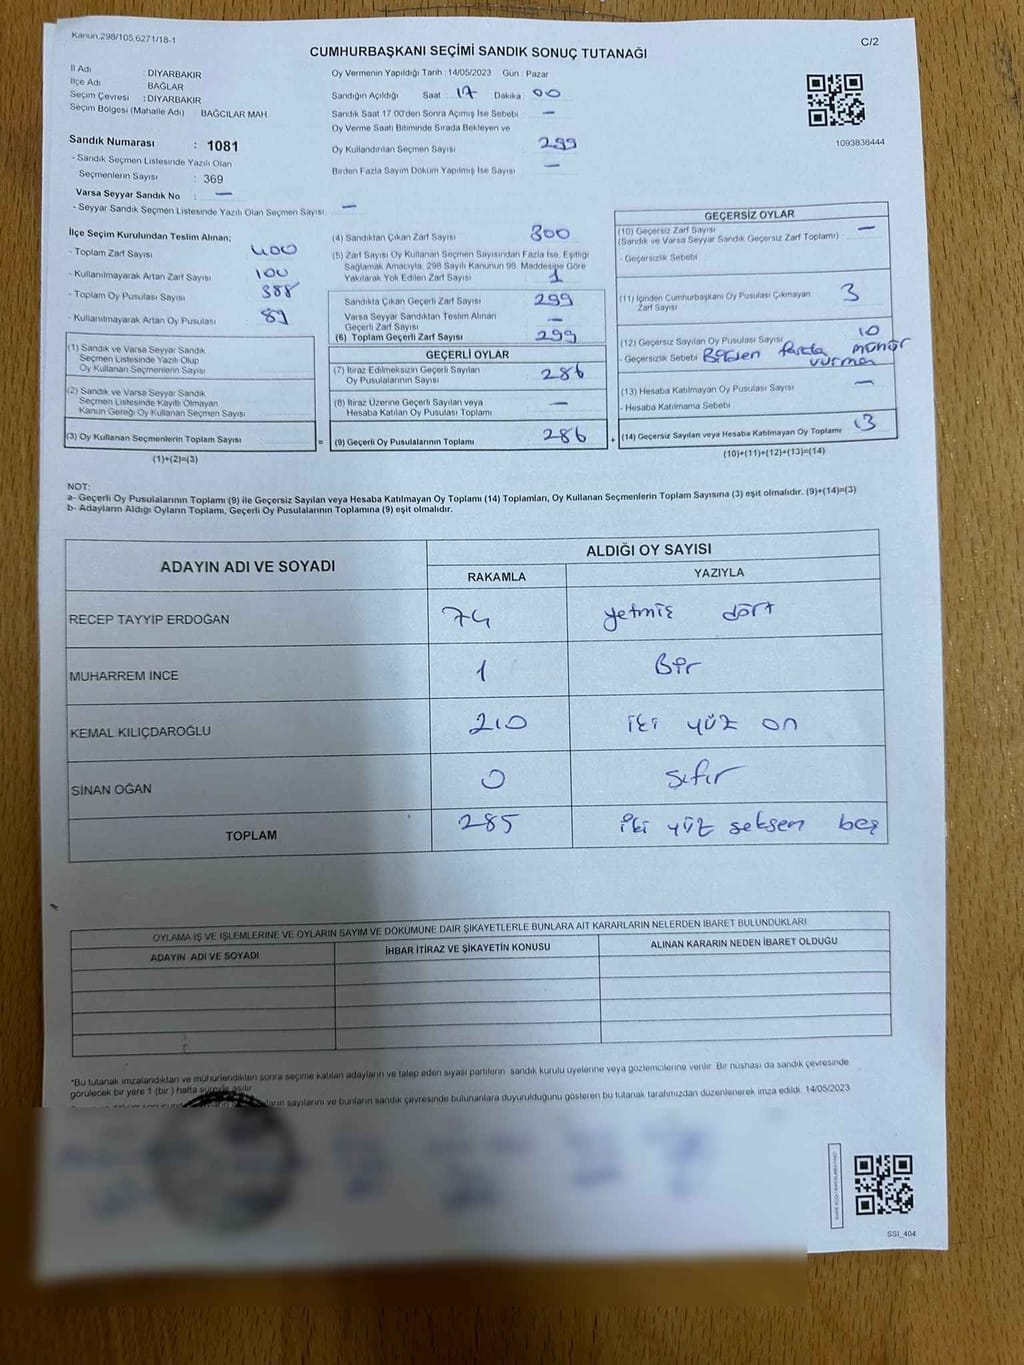 Kanun.298/105,6271/18-1
C/2
CUMHURBAŞKANI SEÇİMİ SANDIK SONUÇ TUTANAĞI
İl Adı : DİYARBAKIR
İlçe Adı BAĞLAR
Seçim Çevresi : DİYARBAKIR
Seçim Bölgesi (Mahalle Adı) BAĞCILAR MAH
Sandık Numarası : 1081
- Sandık Seçmen Listesinde Yazılı Olan
Seçmenlerin Sayısı : 369
Varsa Seyyar Sandık No : —
- Seyyar Sandık Seçmen Listesinde Yazılı Olan Seçmen Sayısı —
Oy Vermenin Yapıldığı Tarih : 14/05/2023 Gün : Pazar
Sandığın Açıldığı Saat : 17 Dakika : 00
Sandık Saat 17:00'den Sonra Açımış İse Sebebi —
Oy Verme Saati Bitiminde Sırada Bekleyen ve
Oy Kullandırılan Seçmen Sayısı 299
Birden Fazla Sayım Döküm Yapılmış İse Sayısı —
1093838444
İlçe Seçim Kurulundan Teslim Alınan;
- Toplam Zarf Sayısı 400
- Kullanılmayarak Artan Zarf Sayısı 100
- Toplam Oy Pusulası Sayısı 388
- Kullanılmayarak Artan Oy Pusulası 89
(1) Sandık ve Varsa Seyyar Sandık
Seçmen Listesinde Yazılı Olup
Oy Kullanan Seçmenlerin Sayısı
(2) Sandık ve Varsa Seyyar Sandık
Seçmen Listesinde Kayıtlı Olmayan
Kanun Gereği Oy Kullanan Seçmen Sayısı
(3) Oy Kullanan Seçmenlerin Toplam Sayısı =
(1)+(2)=(3)
(4) Sandıktan Çıkan Zarf Sayısı 300
(5) Zarf Sayısı Oy Kullanan Seçmen Sayısından Fazla İse, Eşitliği
Sağlamak Amacıyla, 298 Sayılı Kanunun 98. Maddesine Göre
Yakılarak Yok Edilen Zarf Sayısı 1
Sandıkta Çıkan Geçerli Zarf Sayısı 299
Varsa Seyyar Sandıktan Teslim Alınan
Geçerli Zarf Sayısı —
(6) Toplam Geçerli Zarf Sayısı 299
GEÇERLİ OYLAR
(7) İtiraz Edilmeksizin Geçerli Sayılan
Oy Pusulalarının Sayısı 286
(8) İtiraz Üzerine Geçerli Sayılan veya
Hesaba Katılan Oy Pusulası Toplamı —
(9) Geçerli Oy Pusulalarının Toplamı 286 +
GEÇERSİZ OYLAR
(10) Geçersiz Zarf Sayısı —
(Sandık ve Varsa Seyyar Sandık Geçersiz Zarf Toplamı)
- Geçersizlik Sebebi
(11) İçinden Cumhurbaşkanı Oy Pusulası Çıkmayan 3
Zarf Sayısı
(12) Geçersiz Sayılan Oy Pusulası Sayısı 10
- Geçersizlik Sebebi Birden fazla mühür
vurma
(13) Hesaba Katılmayan Oy Pusulası Sayısı —
- Hesaba Katılmama Sebebi
(14) Geçersiz Sayılan veya Hesaba Katılmayan Oy Toplamı 13
(10)+(11)+(12)+(13)=(14)
NOT:
a- Geçerli Oy Pusulalarının Toplamı (9) ile Geçersiz Sayılan veya Hesaba Katılmayan Oy Toplamı (14) Toplamları, Oy Kullanan Seçmenlerin Toplam Sayısına (3) eşit olmalıdır. (9)+(14)=(3)
b- Adayların Aldığı Oyların Toplamı, Geçerli Oy Pusulalarının Toplamına (9) eşit olmalıdır.
ADAYIN ADI VE SOYADI ALDIĞI OY SAYISI
RAKAMLA YAZIYLA
RECEP TAYYİP ERDOĞAN 74 yetmiş dört
MUHARREM İNCE 1 Bir
KEMAL KILIÇDAROĞLU 210 iki yüz on
SİNAN OĞAN 0 sıfır
TOPLAM 285 iki yüz seksen beş
OYLAMA İŞ VE İŞLEMLERİNE VE OYLARIN SAYIM VE DÖKÜMÜNE DAİR ŞİKAYETLERLE BUNLARA AİT KARARLARIN NELERDEN İBARET BULUNDUKLARI
ADAYIN ADI VE SOYADI İHBAR İTİRAZ VE ŞİKAYETİN KONUSU ALINAN KARARIN NEDEN İBARET OLDUĞU
*Bu tutanak imzalandıktan ve mühürlendikten sonra seçime katılan adayların ve talep eden siyasi partilerin sandık kurulu üyelerine veya gözlemcilerine verilir. Bir nüshası da sandık çevresinde
görülecek bir yere 1 (bir) hafta süreyle asılır.
sayılarını ve bunların sandık çevresinde bulunanlara duyurulduğunu gösteren bu tutanak tarafımızdan düzenlenerek imza edildi. 14/05/2023
SSI_404